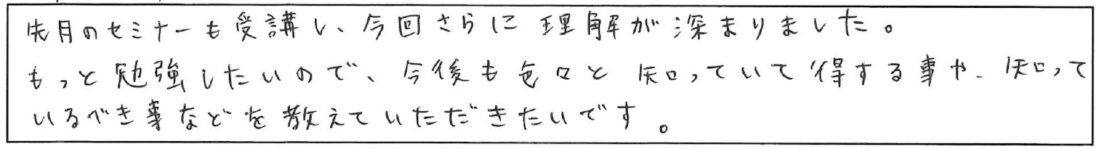 先月のセミナーも受講し、今回さらに理解が深まりました。
もっと勉強したいので、今後も色々と知っていて得する事や、知って
いるべき事などを教えていただきたいです。